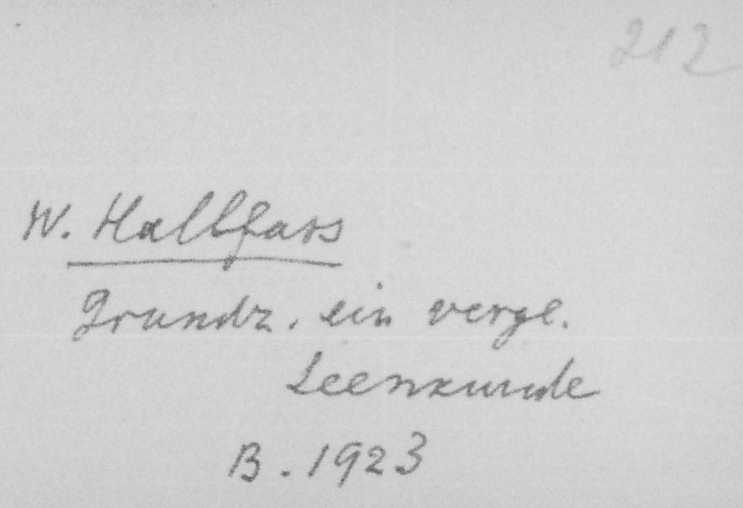 212
W. Halbfass
Grundz. ein vergl.
Seenkunde
B. 1923